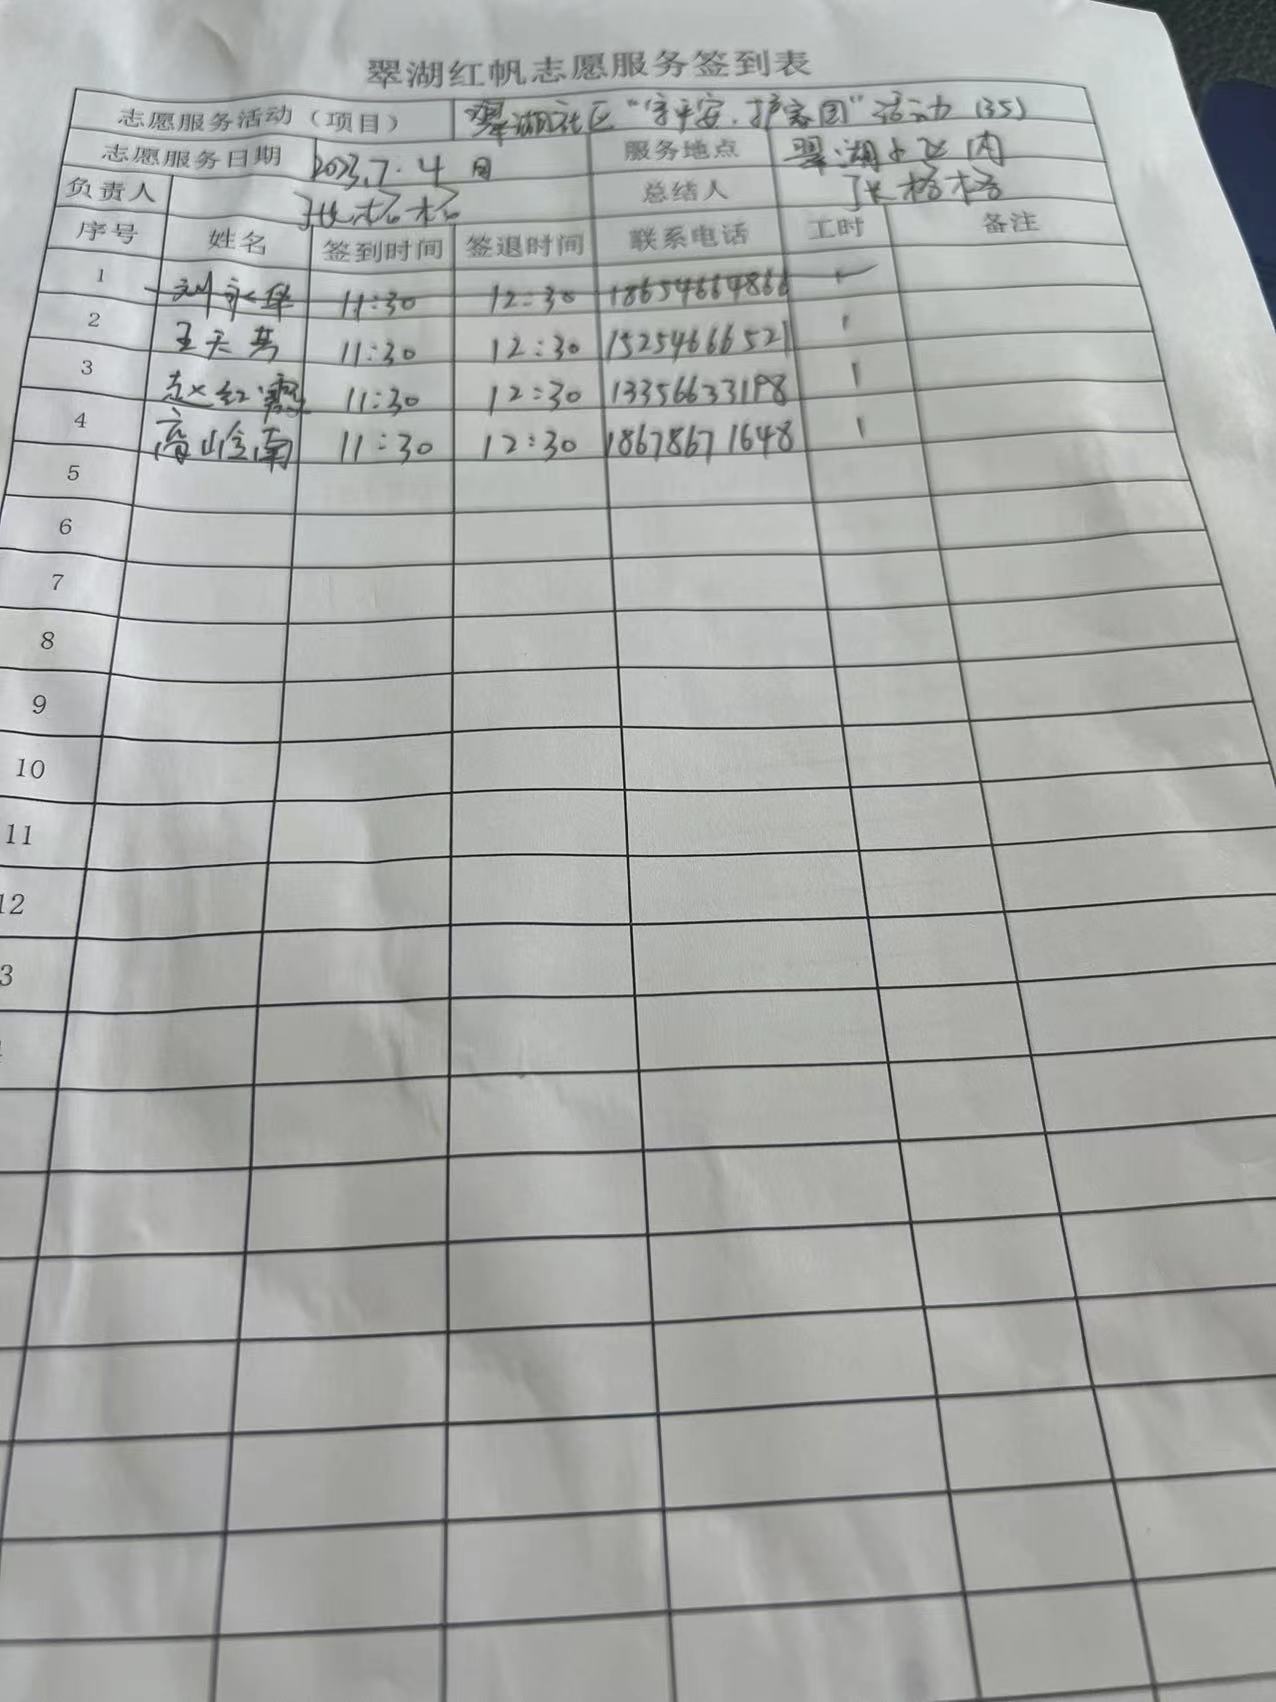 翠湖红帆志愿服务签到表
志愿服务活动（项目） 翠湖社区“守平安.护家园”活动（35）
志愿服务日期 2023.7.4日 服务地点 翠湖小区内
负责人 张格格 总结人 张格格
序号 姓名 签到时间 签退时间 联系电话 工时 备注
1 刘永华 11:30 12:30 18654664866
2 王天 11:30 12:30 15254666521 1
3 赵红霞 11:30 12:30 13356633198 1
4 高岭南 11:30 12:30 18678671648 1
5
6
7
8
9
10
11
12
3